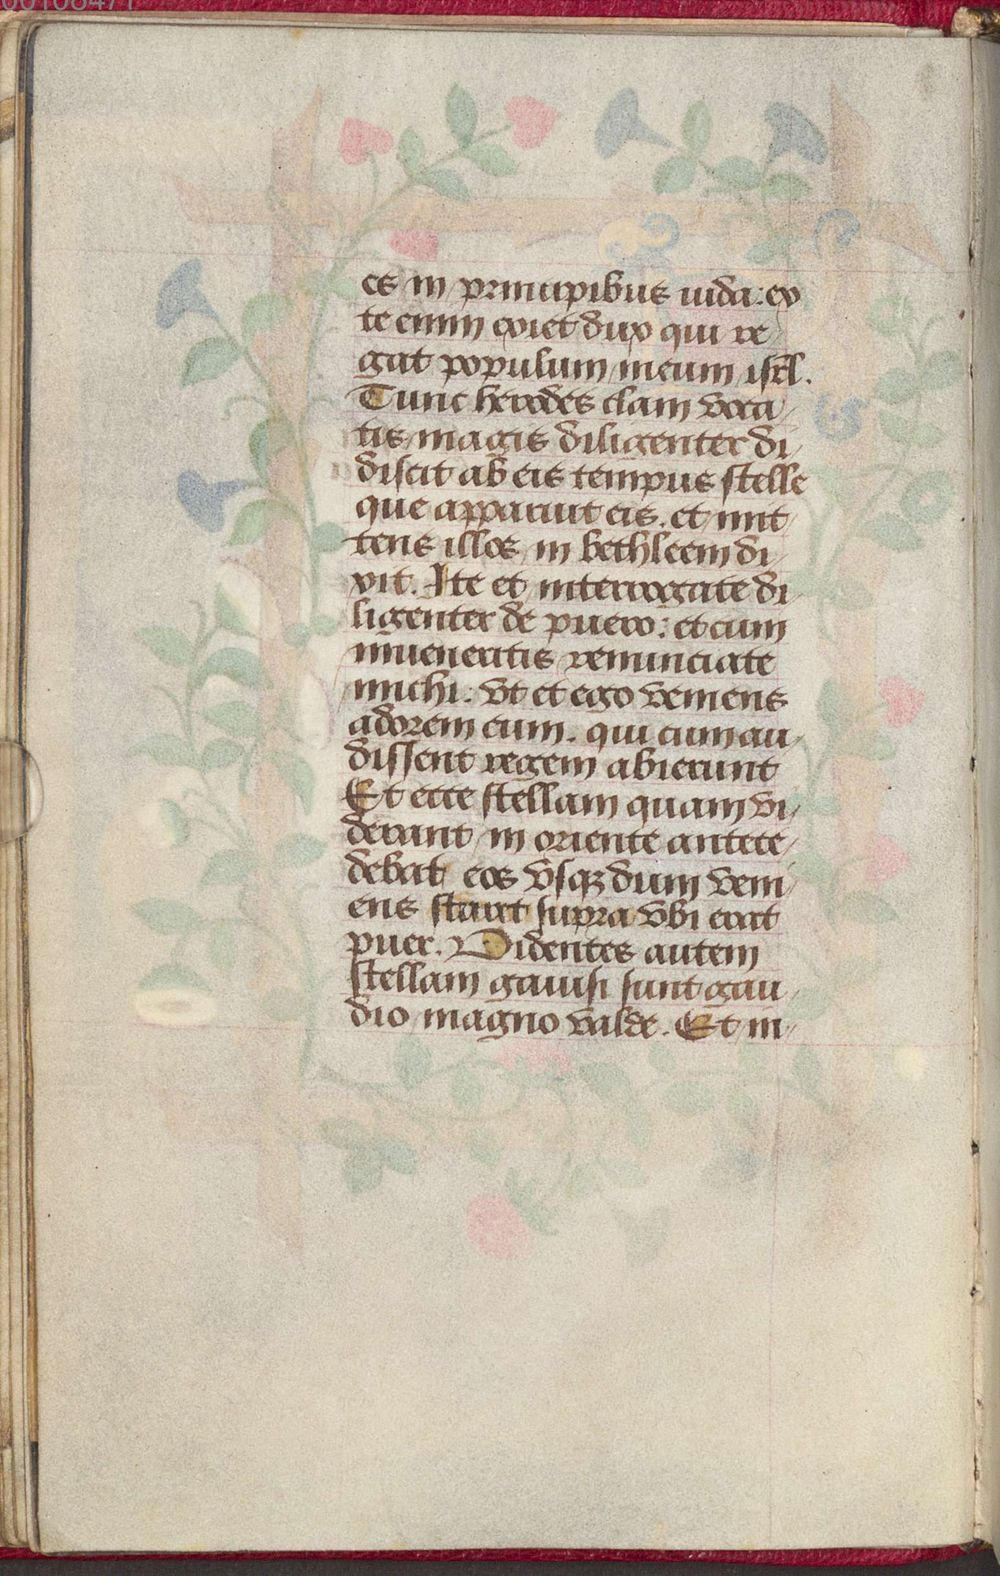 00108471
es in principibus iuda: ex
te enim exiet dux qui re
gat populum meum isrl.
Tunc herodes clam voca
tis magis diligenter di
discit ab eis tempus stelle
que apparuit eis. et mit
tens illos in bethleem di
xit. Ite et interrogate di
ligenter de puero: et cum
inueneritis renunciate
michi: vt et ego veniens
adorem eum. qui cum au
dissent regem abierunt
Et ecce stellam quam vi
derant in oriente antece
debat eos vsqz dum veni
ens staret supra vbi erat
puer. Videntes autem
stellam gauisi sunt gau
dio magno valde. Et in